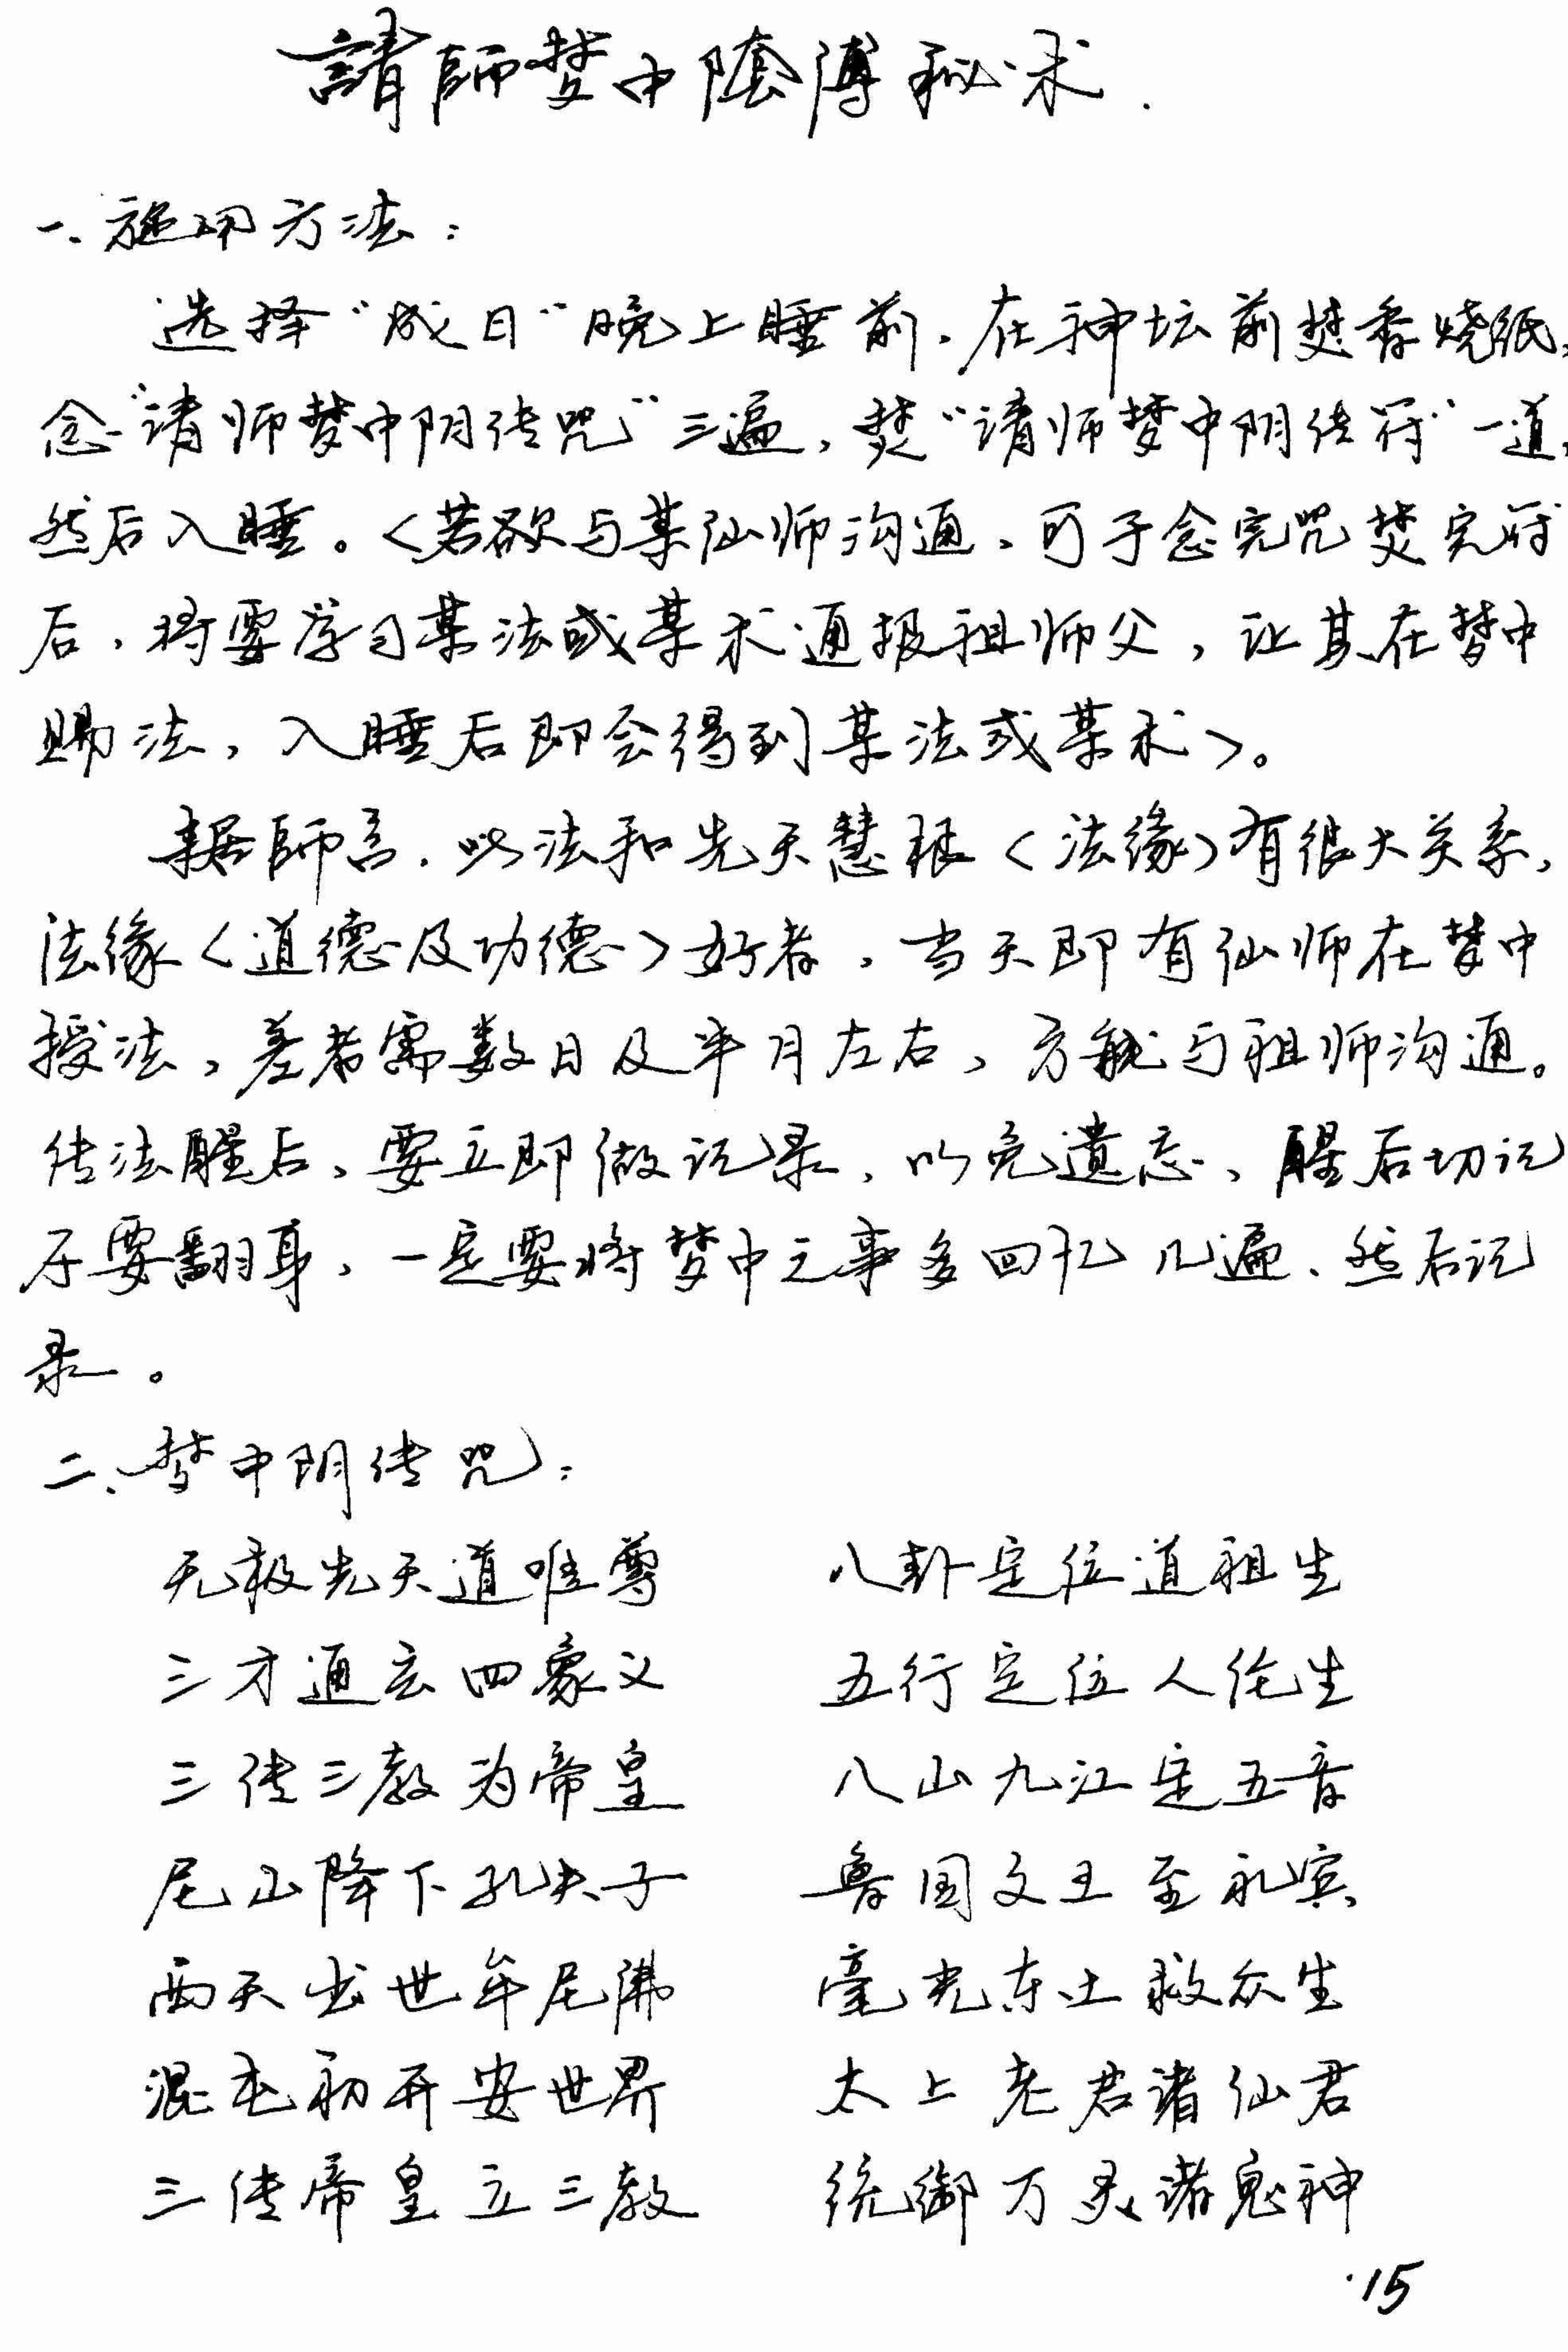 請師梦中陰傳秘术.
一.施用方法：
选择“成日”晚上睡前.在神坛前焚香烧纸,
念“请师梦中阴传咒”三遍,焚“请师梦中阴传符”一道,
然后入睡。<若欲与某仙师沟通,可于念完咒焚完符
后,将要学习某法或某术通报祖师父,让其在梦中
赐法,入睡后即会得到某法或某术>。
据師言.此法和先天慧根<法缘>有很大关系,
法缘<道德及功德>好者,当天即有仙师在梦中
授法,差者需数日及半月左右,方能与祖师沟通。
传法醒后、要立即做记录,以免遗忘、醒后切记
不要翻身,一定要将梦中之事多回忆几遍、然后记
录。
二、梦中阴传咒：
无极先天道唯尊 八卦定位道祖生
三才通玄四象义 五行定位人伦生
三传三教为帝皇 八山九江定五音
尼山降下孔夫子 鲁国文王至礼宾
西天出世牟尼佛 毫光东土救众生
混屯初开安世界 太上老君诸仙君
三传帝皇立三教 统御万灵诸鬼神
·15